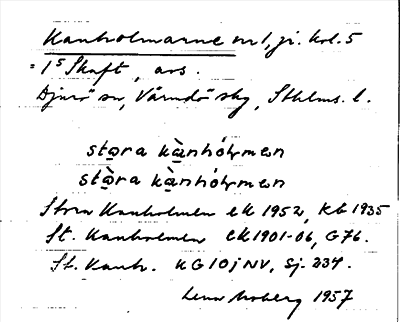 Kanholmarne nr 1, ji. kol. 5
= 1 s Skaft, avs.
Djurö sn, Värmdö skg, Sthlms. l.
stɑ̀ra kànhólmen
stɑ̀ra kànhólmen
Stora Kanholmen ek 1952, KG 1935
St. Kanholmen ek 1901-06, G 76.
St. Kanh. KG 10j NV, Sj. 237.
Moberg 1957